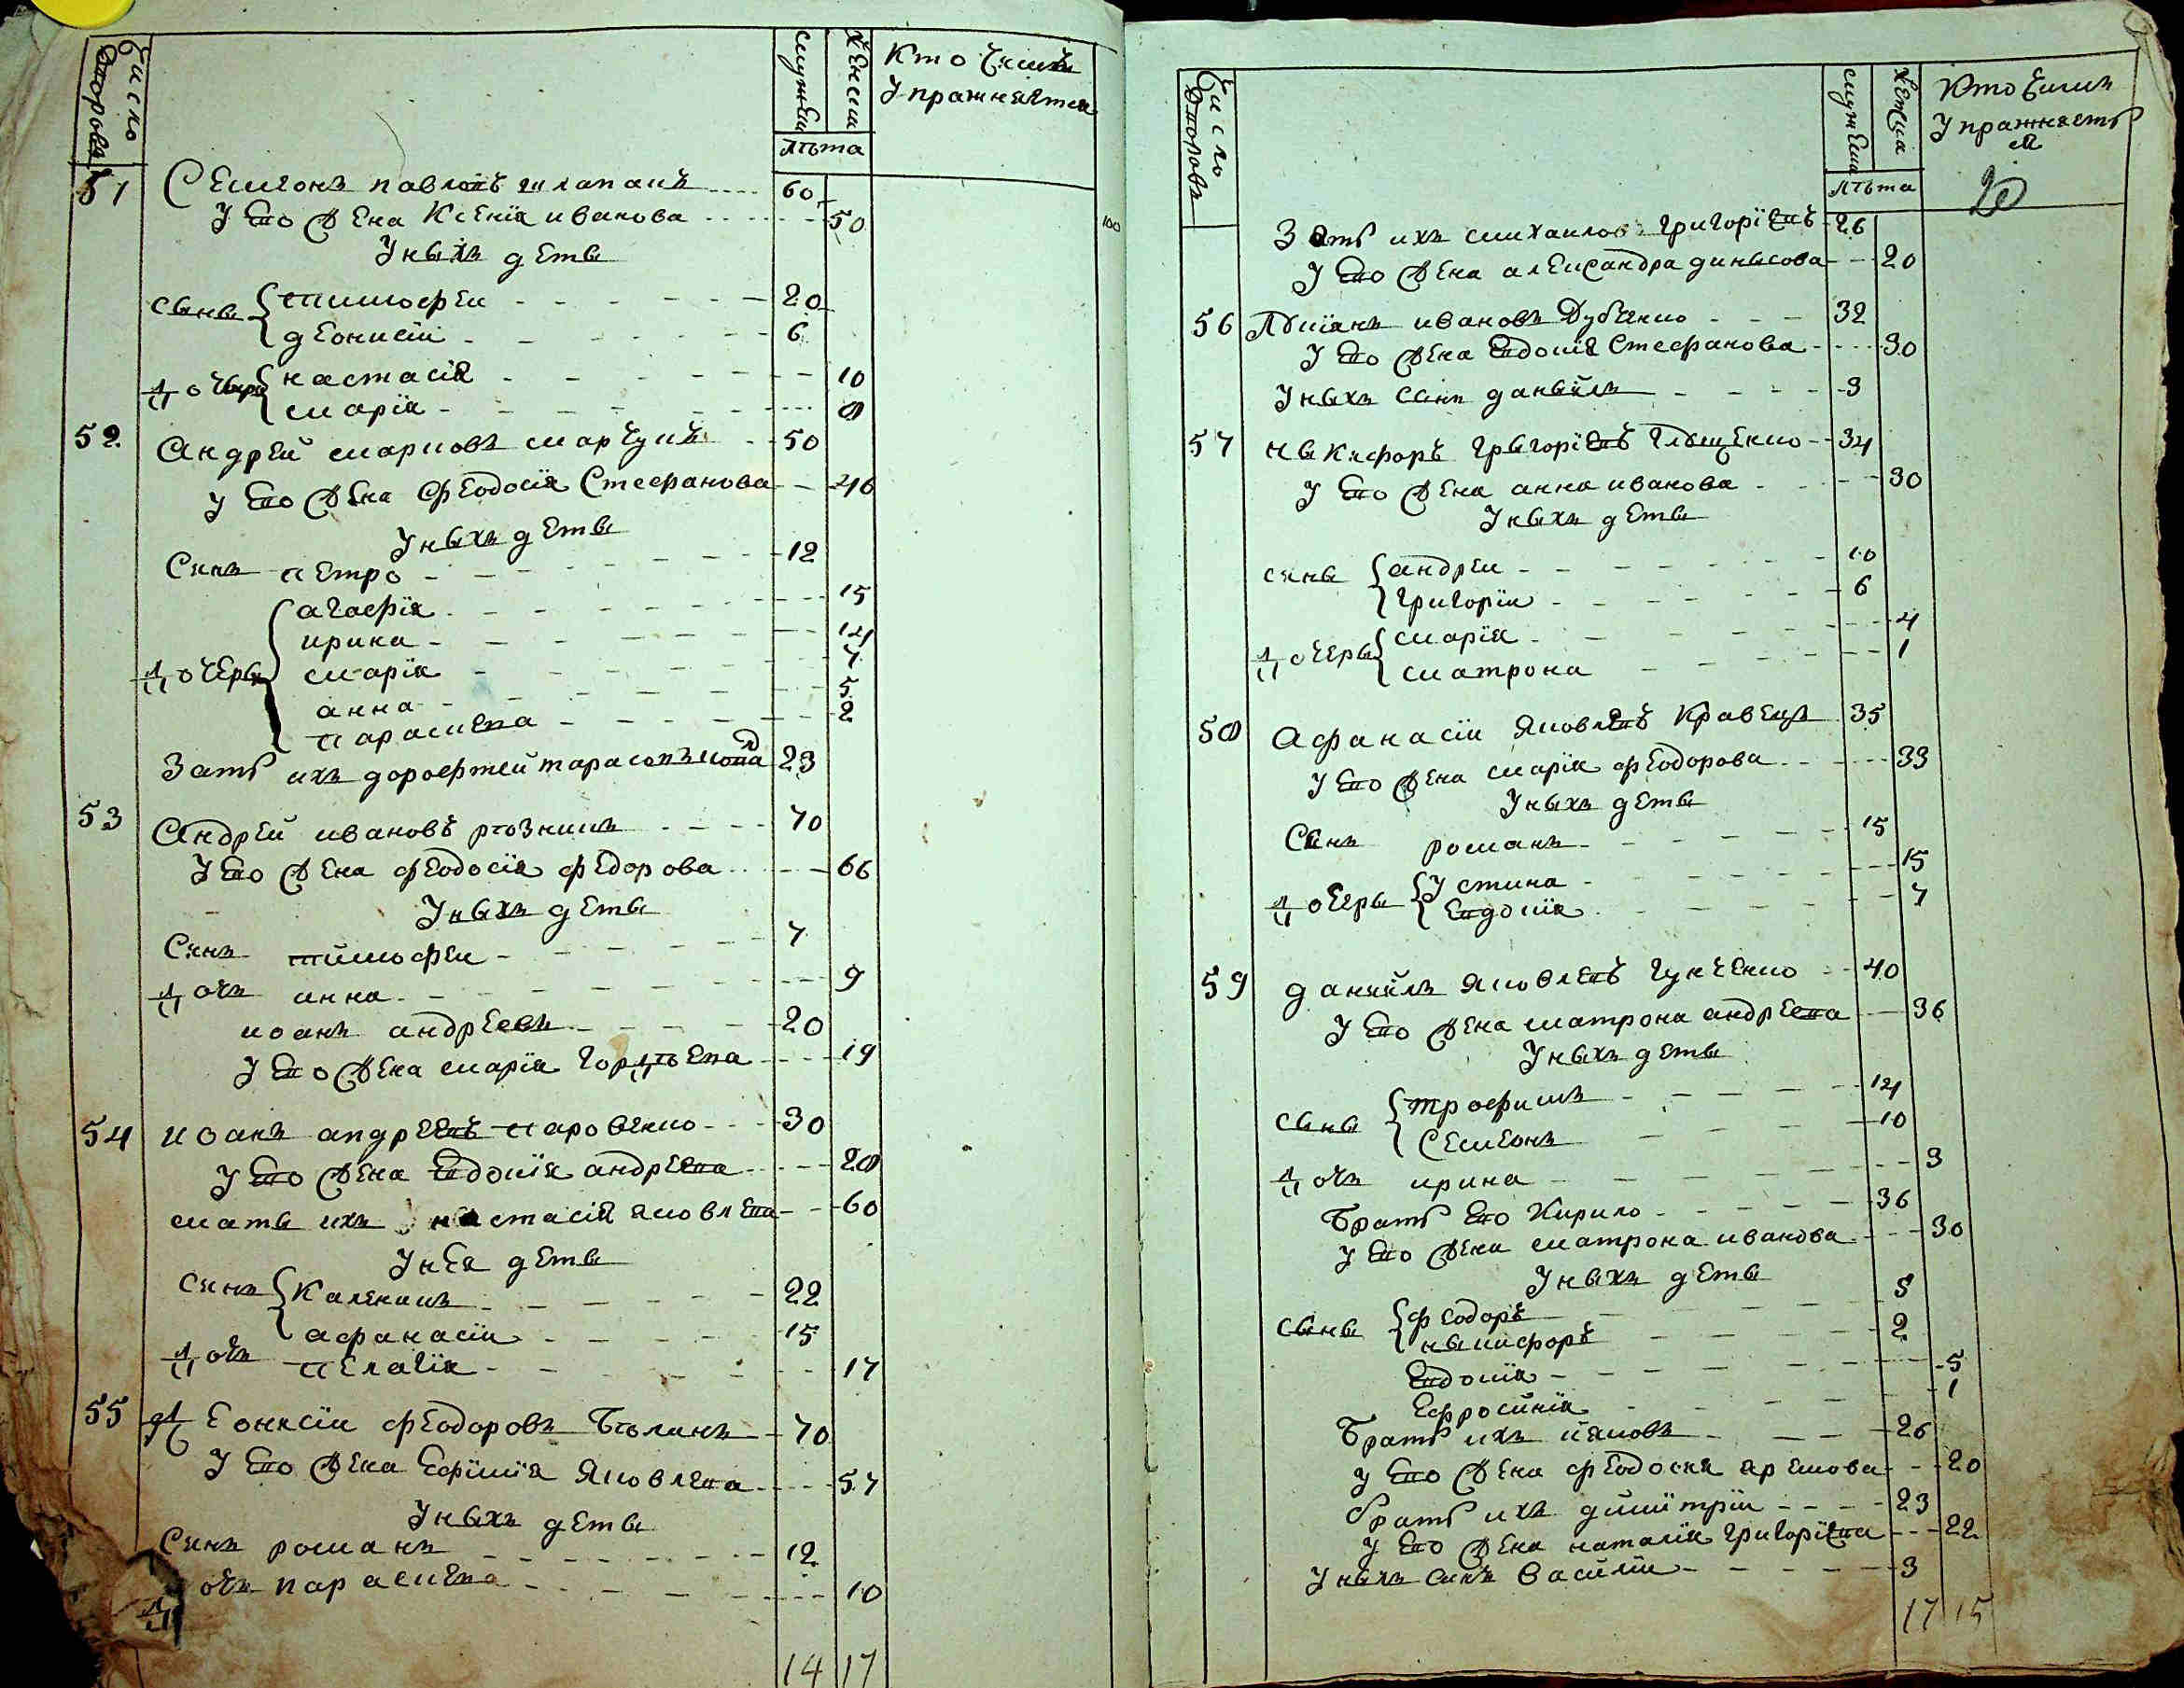 Число дворовъ
мужеска
женска
лѣта
Кто Чимъ
Упражняется
51 Семионъ павловъ шлапакъ 60
У Его жена Ксенія иванова 50
Уныхъ дети
сыны тимофеи 20
деонисіи 6
дочери настасія 10
марія 8
52 Андрей марковъ марчукъ 50
У Его жена феодосія Стефанова 46
Уныхъ дети
Синъ петро 12
агафія 15
ирина 14
дочеры марія 7
анна 5
параскева 2
Зять ихъ дорофтей тарасовъ 23
53 Андрей ивановъ рѣзникъ 70
У Его жена феодосія федорова 66
Уныхъ дети
Синъ тимофеи 7
дочь анна 9
иоанъ андреевъ 20
У Его жена марія Гордѣева 19
54 иоанъ андреевъ паровенко 30
У Его жена Евдокія андреева 28
мать ихъ настасія яковлева 60
У нея дети
Синъ Каленикъ 22
афанасіи 15
дочь пелагія 17
55 деонисіи феодоровъ Бѣликъ 70
У Его жена Ефимія яковлева 57
Уныхъ дети
Синъ романъ 12
дочь параскева 10
14 17
100
Число дворовъ
мужеска
женска
лѣта
Кто Чимъ
Упражняеть
ся
20
Зять ихъ михаилов григоріевъ 26
У Его жена александра динисова 20
56 Лукіанъ ивановъ Дубченко 32
У Его жена Евдокія Стефанова 30
Уныхъ синъ даныилъ 3
57 Ныкифоръ григоріевъ глущенко 34
У Его жена анна иванова 30
Уныхъ дети
сины андреи 10
григоріи 6
дочеры марія 4
матрона 1
58 Афанасіи Яковлевъ Кравецъ 35
У Его жена марія феодорова 33
Уныхъ дети
Синъ романъ 15
дочеры Устина 15
Евдокія 7
59 даниилъ яковлевъ гунченко 40
У Его жена матрона андреева 36
Уныхъ дети
сыны трофимъ 14
Семеонъ 10
дочь ирина 3
Братъ Его Кирило 36
У Его жена матрона иванова 30
Уныхъ дети
сыны феодоръ 5
ныкифоръ 2
Евдокія 5
Ефросинія 1
Братъ ихъ иаковъ 26
У Его жена феодосія яремова 20
братъ ихъ димитріи 23
У Его жена наталія григоріева 22
Уныхъ синъ василіи 3
17 15